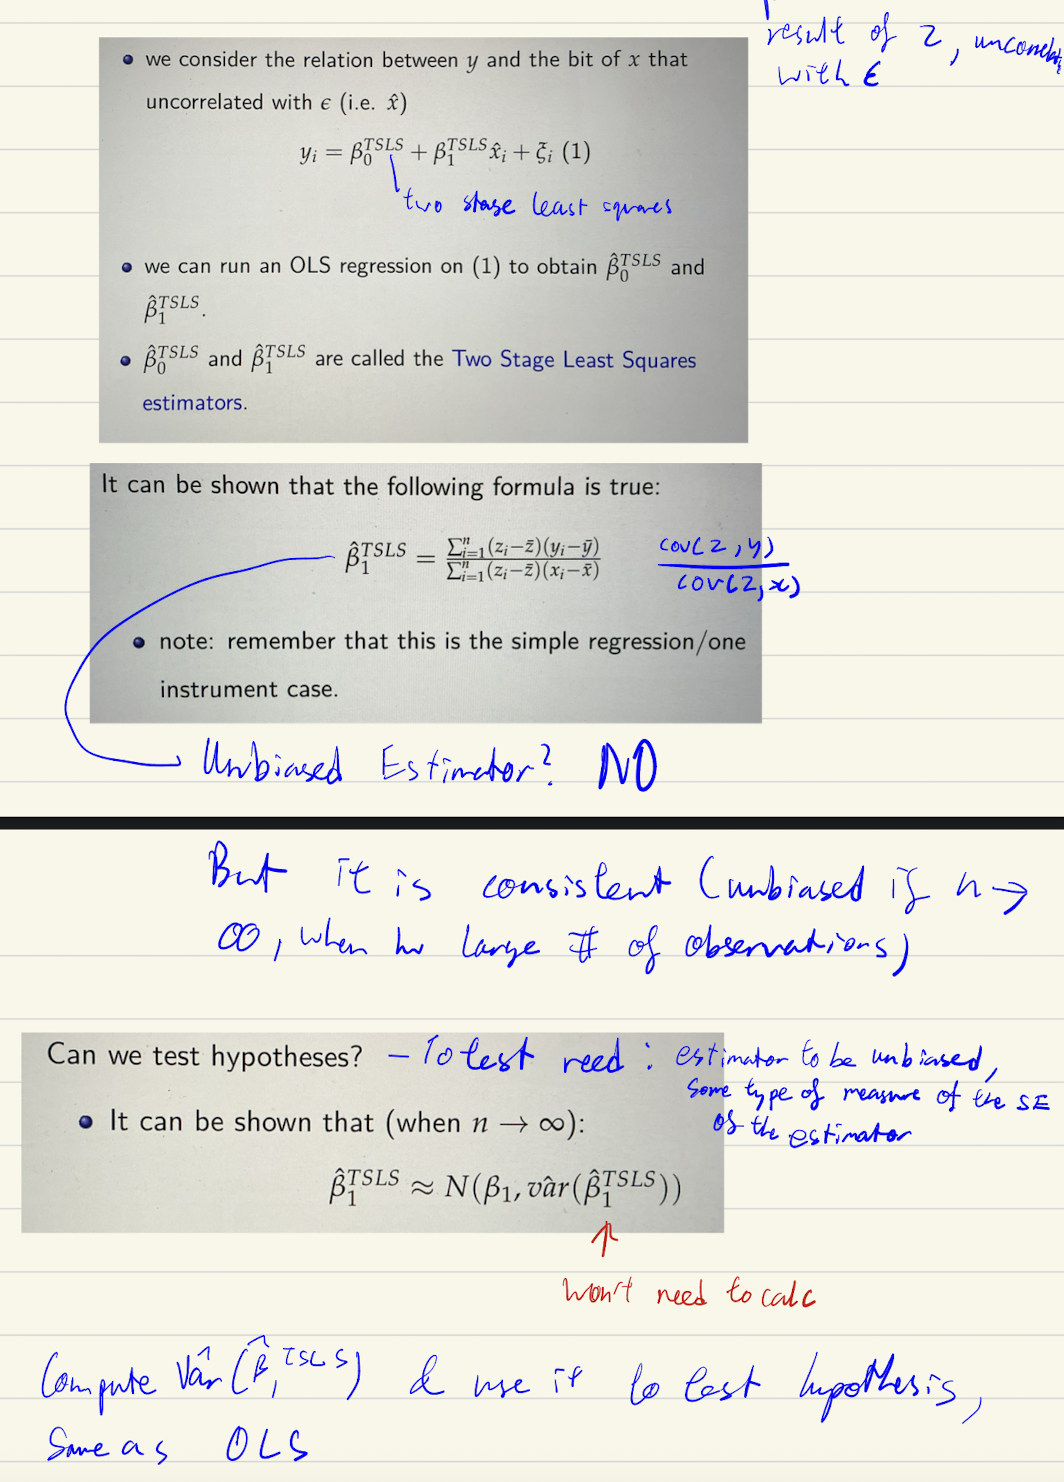 result of z, uncorrelat
with ϵ
• we consider the relation between y and the bit of x that
uncorrelated with ϵ (i.e. x̂)
yᵢ = β₀^TSLS + β₁^TSLS x̂ᵢ + ξᵢ (1)
two stage least squares
• we can run an OLS regression on (1) to obtain β̂₀^TSLS and
β̂₁^TSLS.
• β̂₀^TSLS and β̂₁^TSLS are called the Two Stage Least Squares
estimators.
It can be shown that the following formula is true:
β̂₁^TSLS = ∑ⁿᵢ₌₁(zᵢ−z̄)(yᵢ−ȳ) / ∑ⁿᵢ₌₁(zᵢ−z̄)(xᵢ−x̄) cov(z,y) / cov(z,x)
• note: remember that this is the simple regression/one
instrument case.
Unbiased Estimator? NO
But it is consistent (unbiased if n →
∞, when hv large # of observations)
Can we test hypotheses? – To test need : estimator to be unbiased,
some type of measure of the SE
of the estimator
• It can be shown that (when n → ∞):
β̂₁^TSLS ≈ N(β₁, vâr(β̂₁^TSLS))
won't need to calc
Compute Vâr(β̂₁^TSLS) & use it to test hypothesis,
Same as OLS